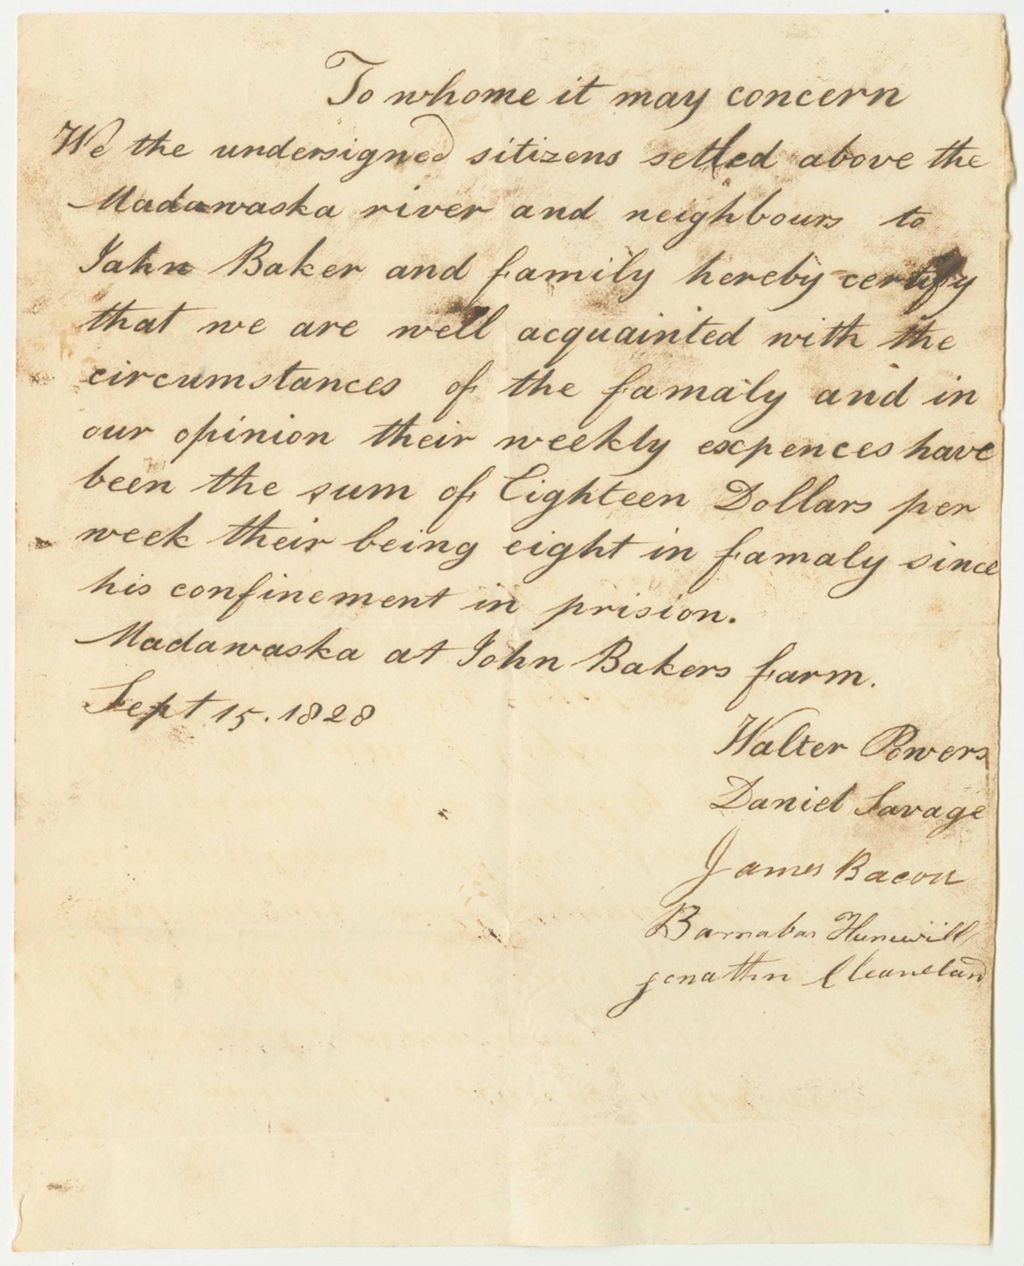 To whome it may concern
We the undersigned sitizens setled above the
Madawaska river and neighbours to
John Baker and family hereby certify
that we are well acquainted with the
circumstances of the famaly and in
our opinion their weekly expences have
been the sum of Eighteen Dollars per
week their being eight in famaly since
his confinement in prision.
Madawaska at John Bakers farm.
Sept 15. 1828
Walter Powers
Daniel Savage
James Bacon
Barnabas Hunewill
Jonathn Cleaveland